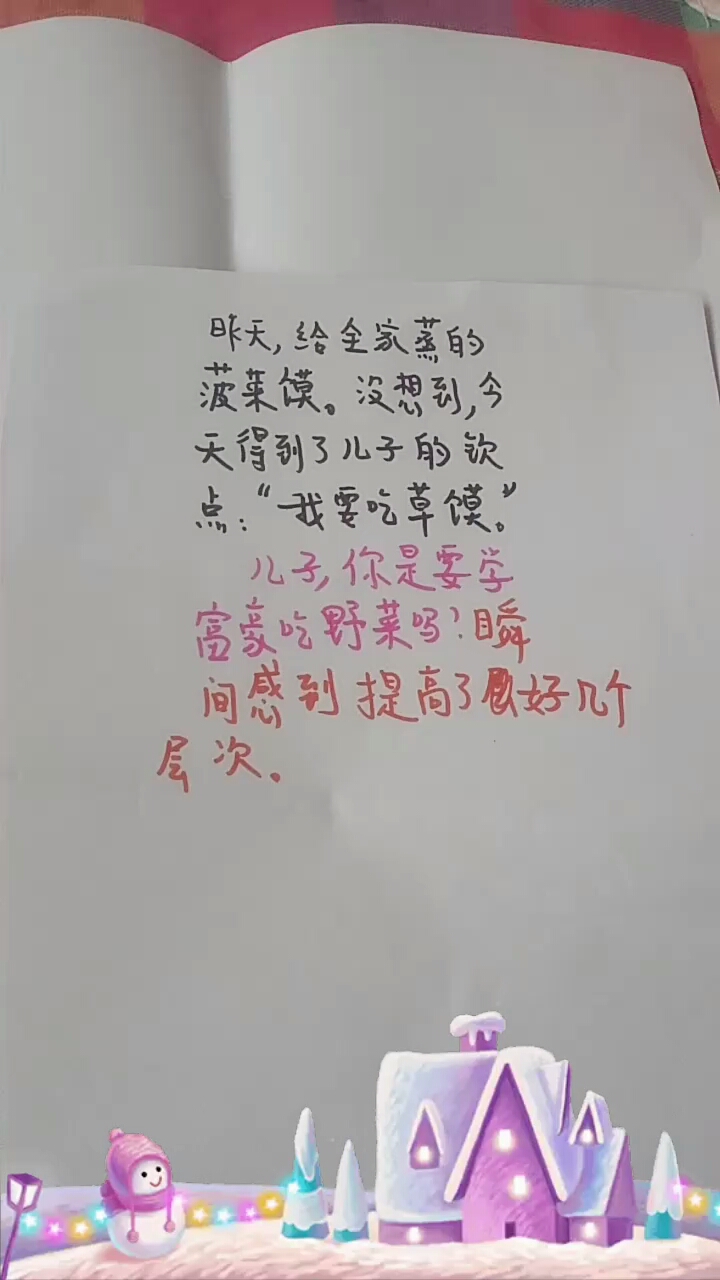 昨天,给全家蒸的
菠菜馍。没想到,今
天得到了儿子的钦
点:“我要吃草馍。”
儿子,你是要学
富豪吃野菜吗?瞬
间感到提高了好几个
层次。